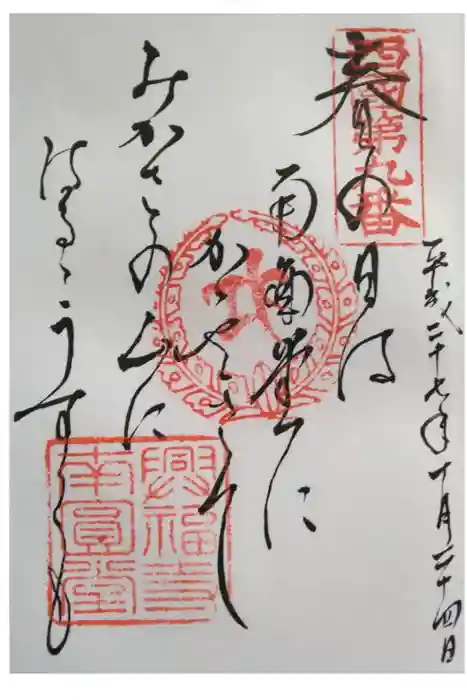 西國第九番
平成二十七年十月二十四日
春の日は
南圓堂に
かゝやきて
みかさの山に
はるゝうすくも
興福寺
南圓堂